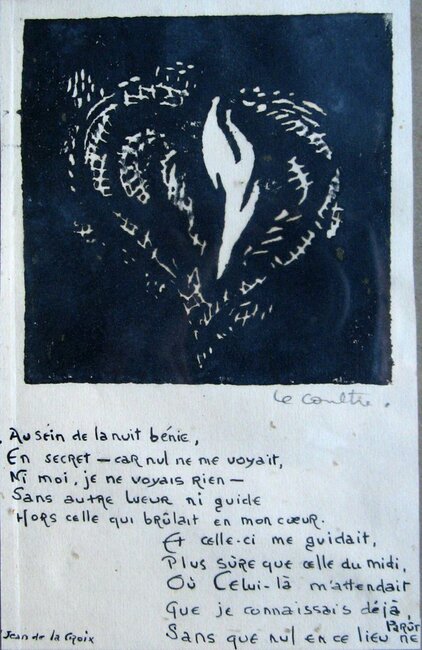 Le Coultre.
Au sein de la nuit bénie,
En secret – car nul ne me voyait,
Ni moi, je ne voyais rien –
Sans autre lueur ni guide
Hors celle qui brûlait en mon cœur.
Et celle-ci me guidait,
Plus sûre que celle du midi,
Où Celui-là m'attendait
Que je connaissais déjà,
Sans que nul en ce lieu ne
Parût
Jean de la Croix